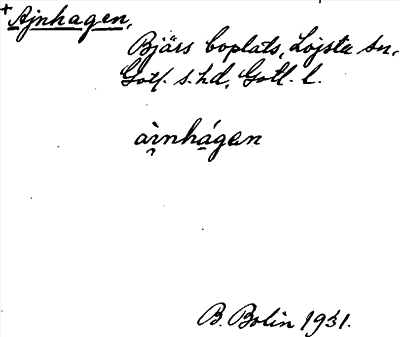 +Ajnhagen,
Bjärs boplats, Lojsta sn.
Gotl. s. hd, Gotl. l.
ài̯nhágen
B. Bolin 1931.